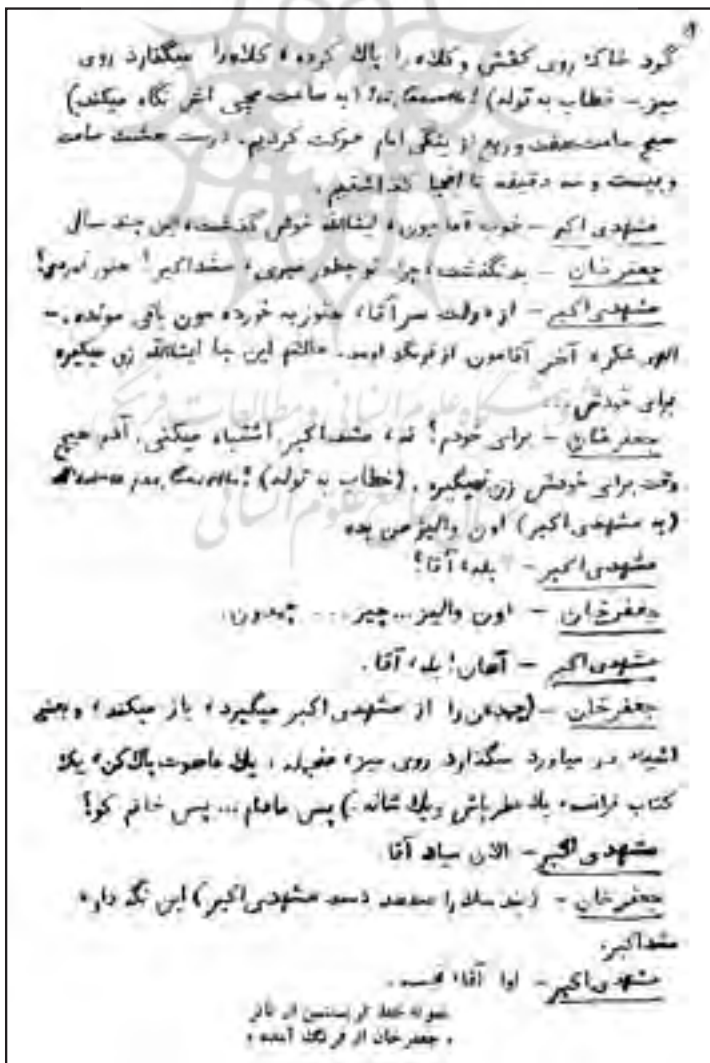 ۹
گرد خاک روی کفش و کلاه را پاک کرده، کلاه را میگذارد روی
میز. – خطاب به توله) ! (به ساعت مچی اش نگاه میکند)
صبح ساعت هفت و ربع از ینگی امام حرکت کردیم. درست هشت ساعت
و بیست و سه دقیقه تا اینجا
مشهدی اکبر – خوب آقا جون، ایشالله خوش گذشت، این چند سال
جعفرخان – بد نگذشت، چرا. تو چطور میری، مشداکبر؟ هنوز نمردی؟
مشهدی اکبر – از دولت سر آقا، هنوز یه خورده جون باقی مونده. –
الهی شکر، آخر آقامون از فرنگ اومد. حالام این جا ایشالله زن میگیره
برای خودش ...
جعفرخان – برای خودم؟ نه، مشداکبر. اشتباه میکنی. آدم هیچ
وقت برای خودش زن نمیگیره. (خطاب به توله)
(به مشهدی اکبر) اون والیز من بده
مشهدی اکبر – بله، آقا؟
جعفرخان – اون والیز... چیز ... چمدون.
مشهدی اکبر – آهان! بله، آقا.
جعفرخان – (چمدان را از مشهدی اکبر میگیرد، باز میکند، و بعضی
اشیاء در میاورد میگذارد روی میز، یک ماهوت پاک کن، یک
کتاب فرانسه، یک عطرپاش و یک شانه.) پس مادام... پس خانم کو؟
مشهدی اکبر – الان میاد آقا
جعفرخان – (را میدهد دست مشهدی اکبر) این نگه دار،
مشداکبر.
مشهدی اکبر – اوا آقا،
نمونه خط از تآتر
« جعفر خان از فرنگ آمده »
پژوهشگاه علوم انسانی و مطالعات فرهنگی
علوم انسانی